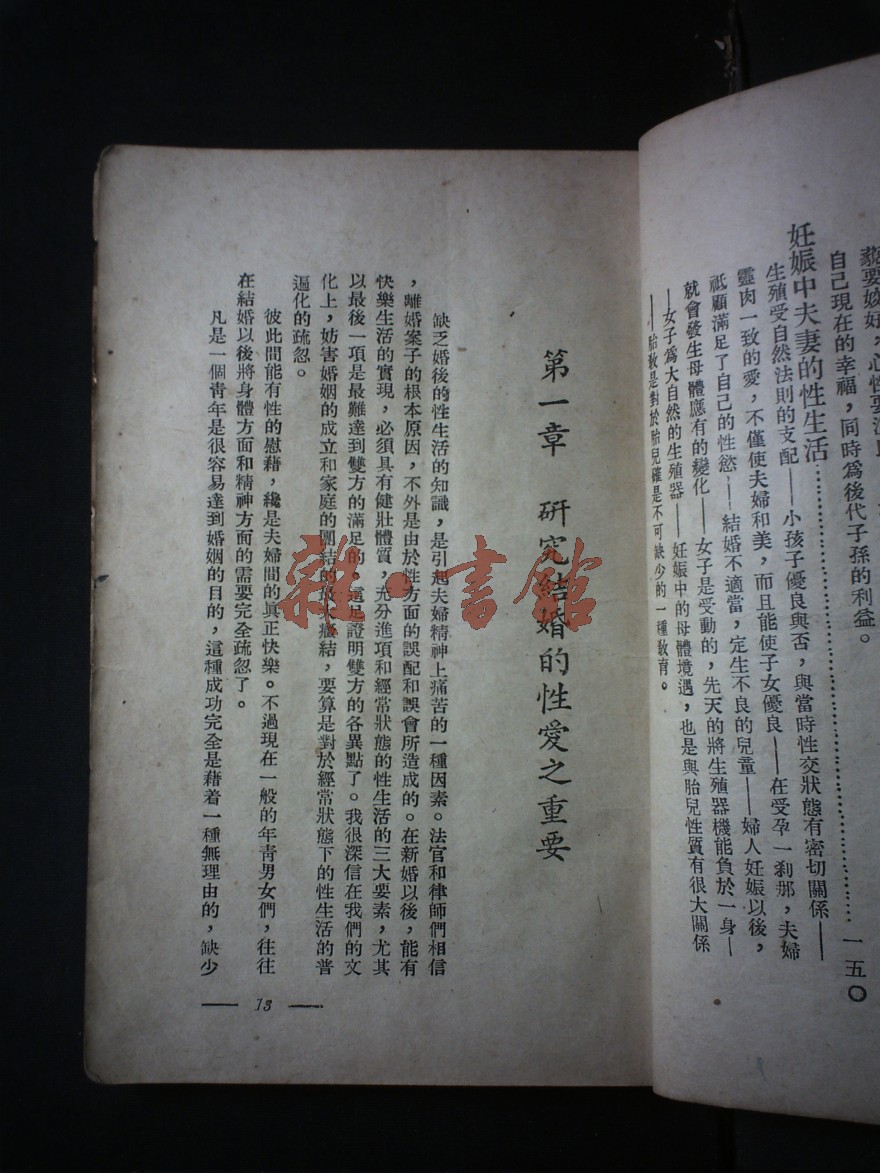 要姣好，心性要
自己現在的幸福，同時爲後代子孫的利益。
妊娠中夫妻的性生活……………………一五〇
生殖受自然法則的支配——小孩子優良與否，與當時性交狀態有密切關係——
靈肉一致的愛，不僅使夫婦和美，而且能使子女優良——在受孕一剎那，夫婦
祇顧滿足了自己的性慾——結婚不適當，定生不良的兒童——婦人妊娠以後，
就會發生母體應有的變化——女子是受動的，先天的將生殖器機能負於一身—
—女子爲大自然的生殖器——妊娠中的母體境遇，也是與胎兒性質有很大關係
——胎教是對於胎兒確是不可缺少的一種教育。
第一章　研究結婚的性愛之重要
缺乏婚後的性生活的知識，是引起夫婦精神上痛苦的一種因素。法官和律師們相信
，離婚案子的根本原因，不外是由於性方面的誤配和誤會所造成的。在新婚以後，能有
快樂生活的實現，必須具有健壯體質，充分進項和經常狀態的性生活的三大要素，尤其
以最後一項是最難達到雙方的滿足的。這足證明雙方的各異點了。我很深信在我們的文
化上，妨害婚姻的成立和家庭的團結的最大癥結，要算是對於經常狀態下的性生活的普
遍化的疏忽。
彼此間能有性的慰藉，纔是夫婦間的眞正快樂。不過現在一般的年靑男女們，往往
在結婚以後將身體方面和精神方面的需要完全疏忽了。
凡是一個靑年是很容易達到婚姻的目的，這種成功完全是藉着一種無理由的，缺少
— 13 —
雜·書館